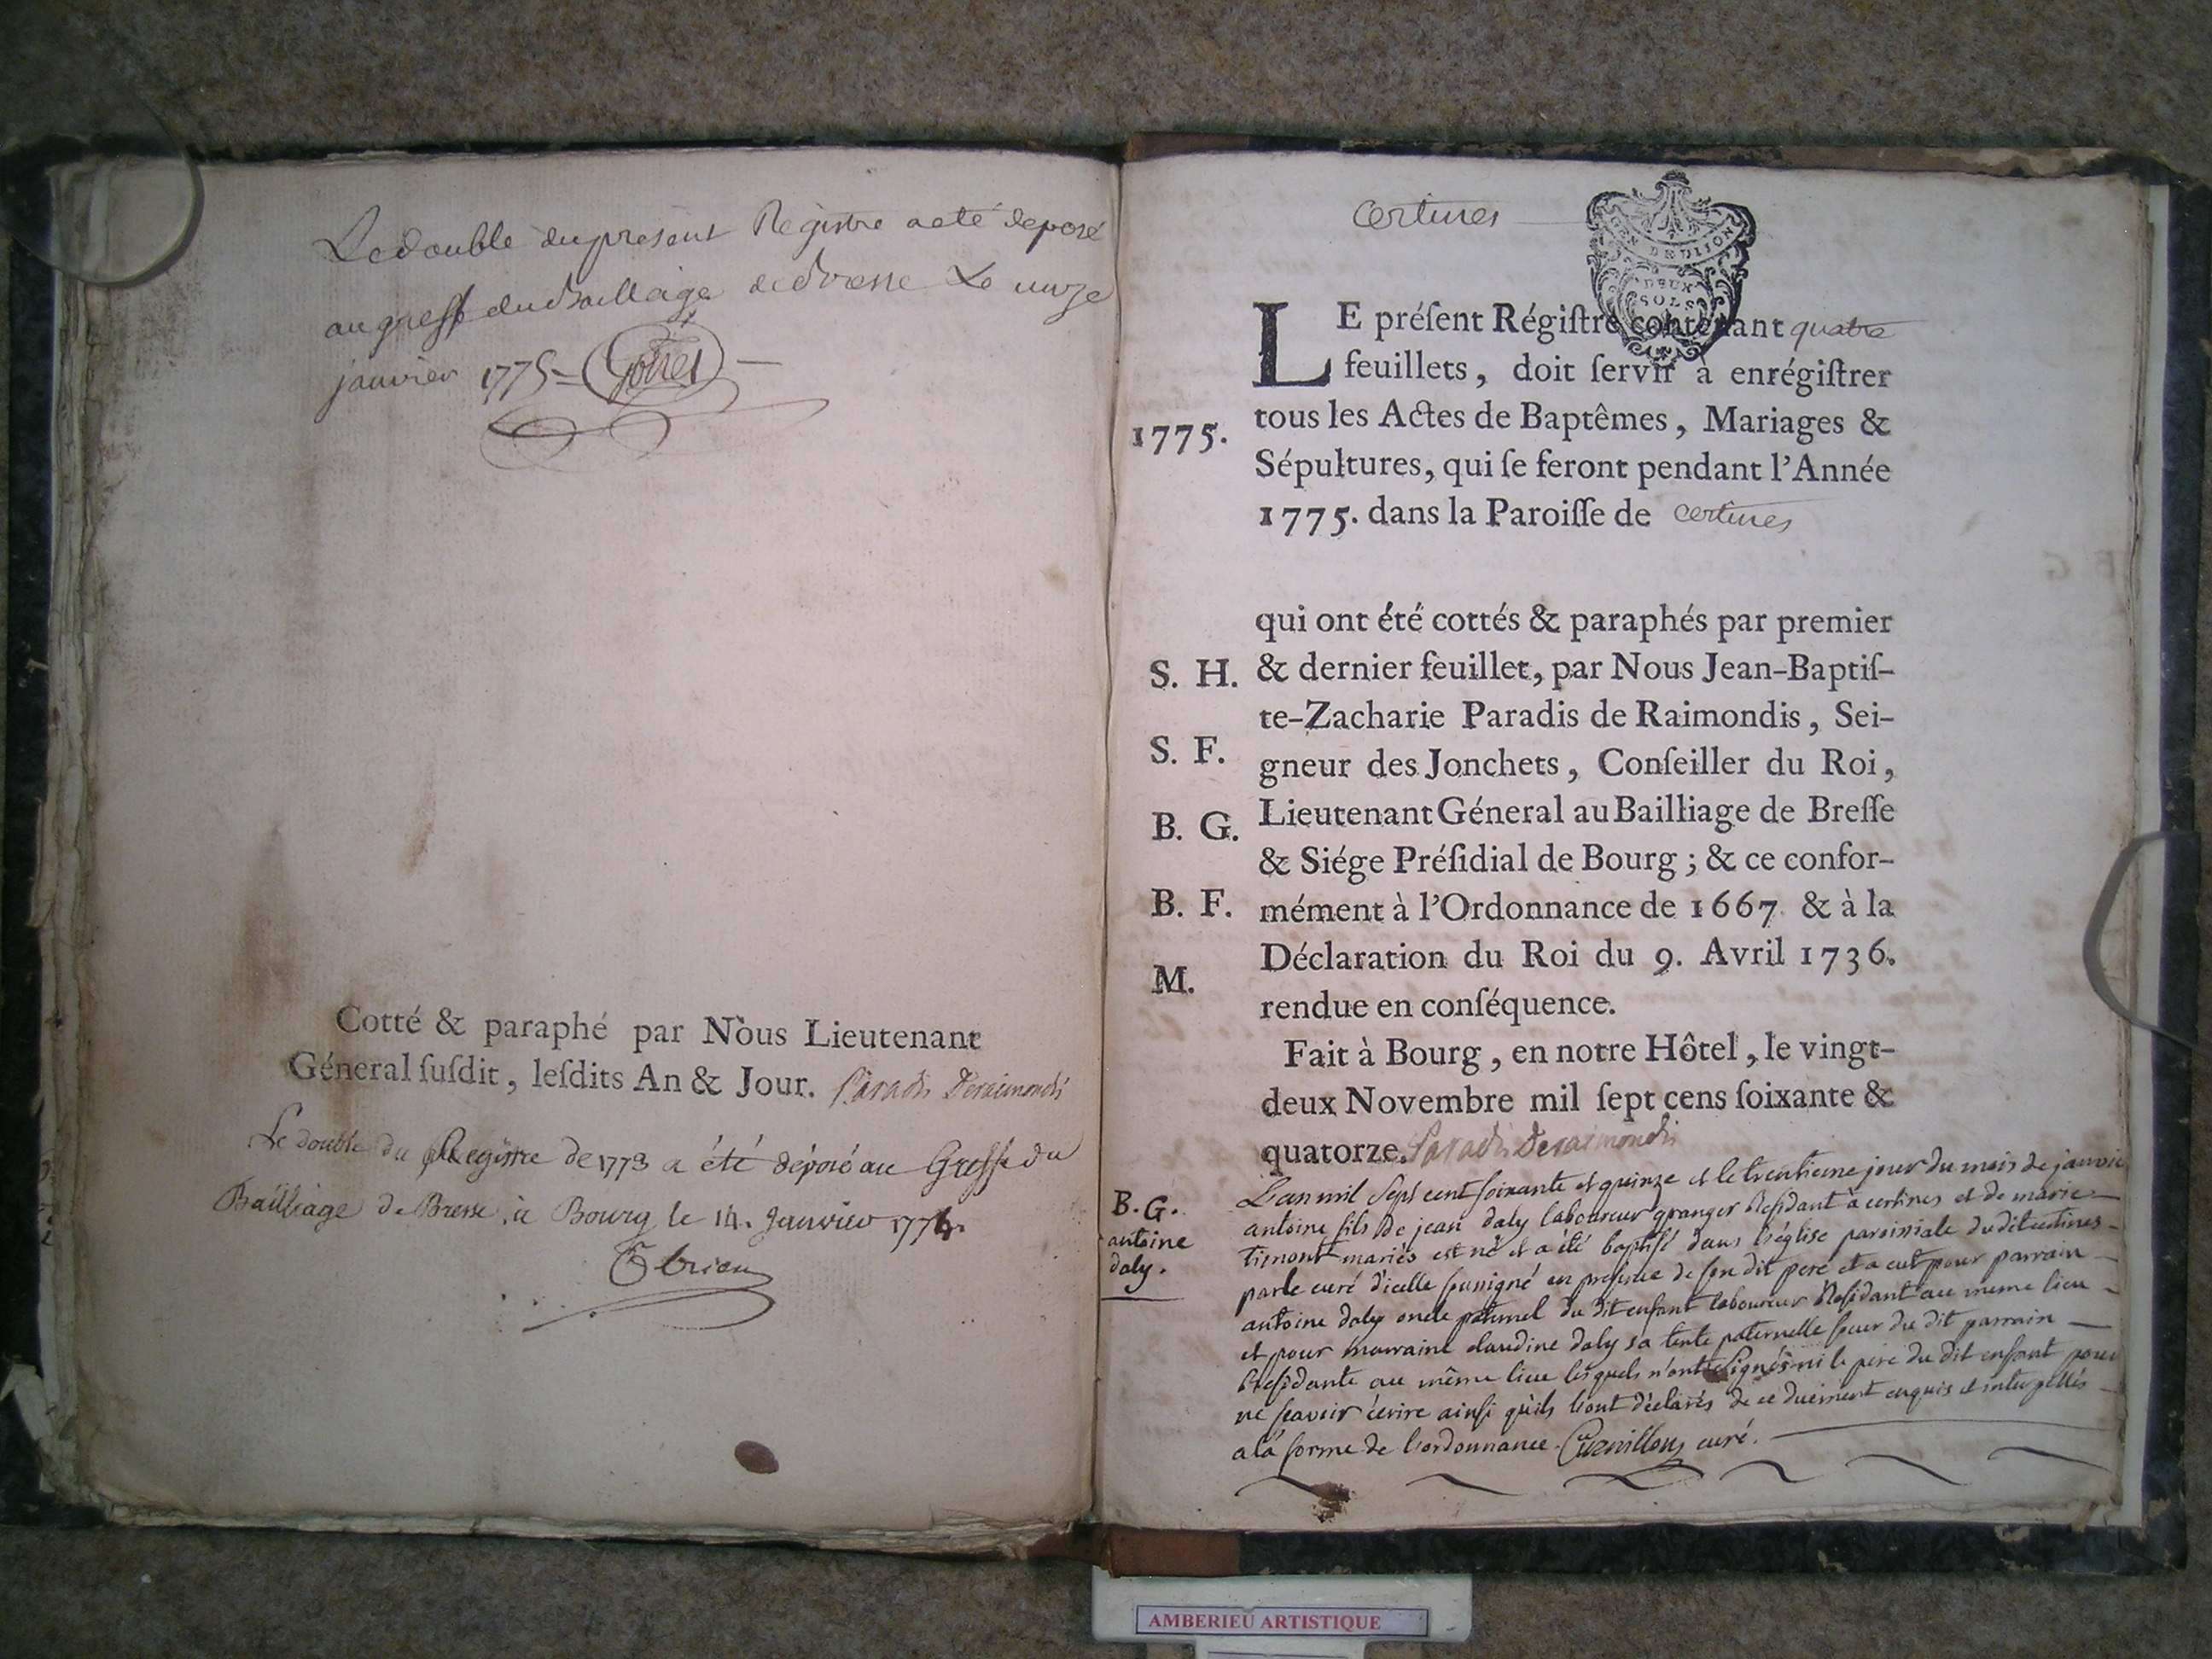 Le double du présent Registre a eté deposé
au greff du Bailliage de Bresse Le unze
janvier 1775
Cotté & paraphé par Nous Lieutenant
Géneral ſuſdit, leſdits An & Jour. Paradis Deraimondis
Le double du Registre de 1773 a été déposé au Greffe du
Bailliage de Bresse, à Bourg le 14. Janvier 1774.
certines
GEN DE DIJON
DEUX
SOLS
LE préſent Régiſtre contenant quatre
feuillets, doit ſervir à enrégiſtrer
tous les Actes de Baptêmes, Mariages &
1775.
Sépultures, qui ſe feront pendant l'Année
1775. dans la Paroiſſe de certines
qui ont été cottés & paraphés par premier
S. H. & dernier feuillet, par Nous Jean-Baptiſ-
te-Zacharie Paradis de Raimondis, Sei-
S. F. gneur des Jonchets, Conſeiller du Roi,
B. G. Lieutenant Géneral au Bailliage de Breſſe
& Siége Préſidial de Bourg ; & ce confor-
B. F. mément à l'Ordonnance de 1667 & à la
Déclaration du Roi du 9. Avril 1736.
M. rendue en conſéquence.
Fait à Bourg, en notre Hôtel, le vingt-
deux Novembre mil ſept cens ſoixante &
quatorze. Paradis Deraimondis
B. G.
antoine
daly.
L'an mil sept cent soixante et quinze et le trentieme jour du mois de janvier
antoine fils de jean daly laboureur granger Résidant à certines et de marie
mariés est né et a été baptisé dans l'église paroissiale du dit certines
par le curé d'icelle soussigné en présence de son dit pere et a eut pour parrain
antoine daly oncle paternel du dit enfant laboureur Résidant au meme lieu
et pour marraine claudine daly sa tente paternelle sœur du dit parrain
Residante au même lieu lesquels n'ont signés ni le pere du dit enfant pour
ne scavoir écrire ainsi qu'ils l'ont déclarés de ce duement enquis et interpellés
a la forme de l'ordonnance. curé.
AMBERIEU ARTISTIQUE